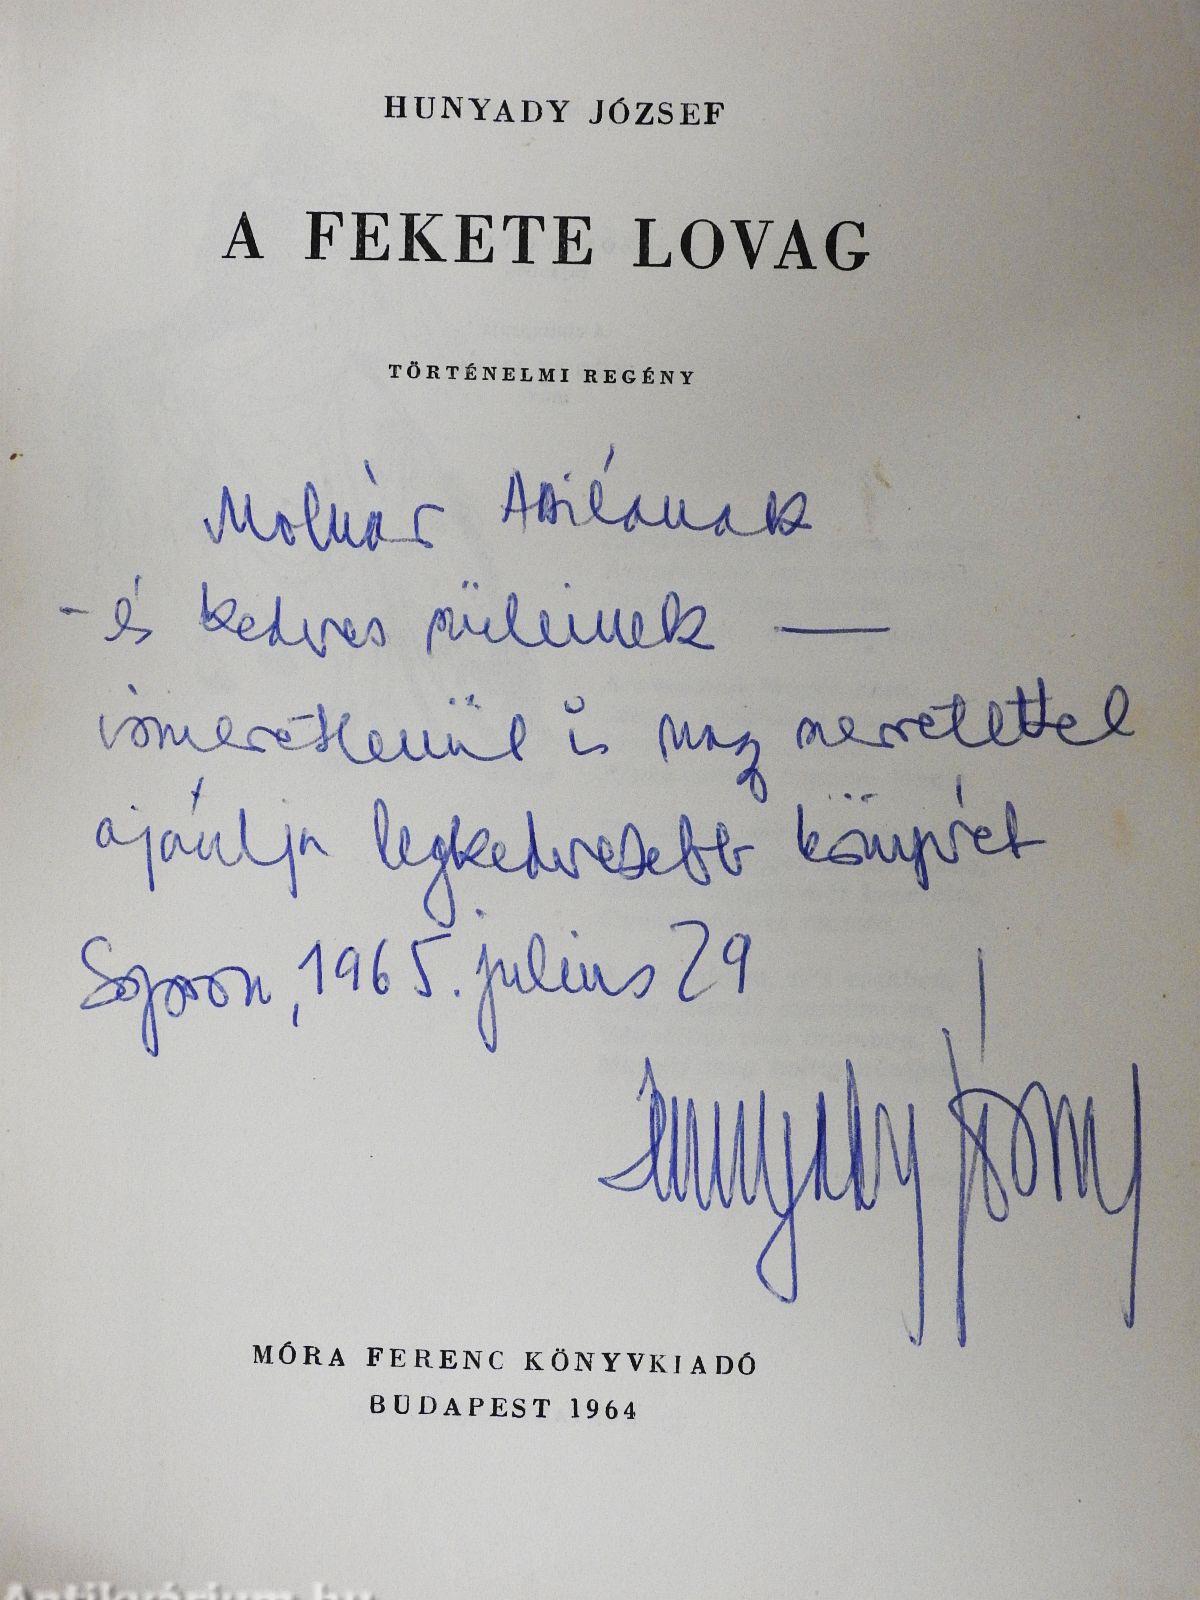 HUNYADY JÓZSEF
A FEKETE LOVAG
TÖRTÉNELMI REGÉNY
Molnár Attilának
- és kedves szüleinek —
ismeretlenül is nagy szeretettel
ajánlja legkedvesebb könyvét
Sopron, 1965. július 29
Hunyady József
MÓRA FERENC KÖNYVKIADÓ
BUDAPEST 1964
Antikvárium.hu